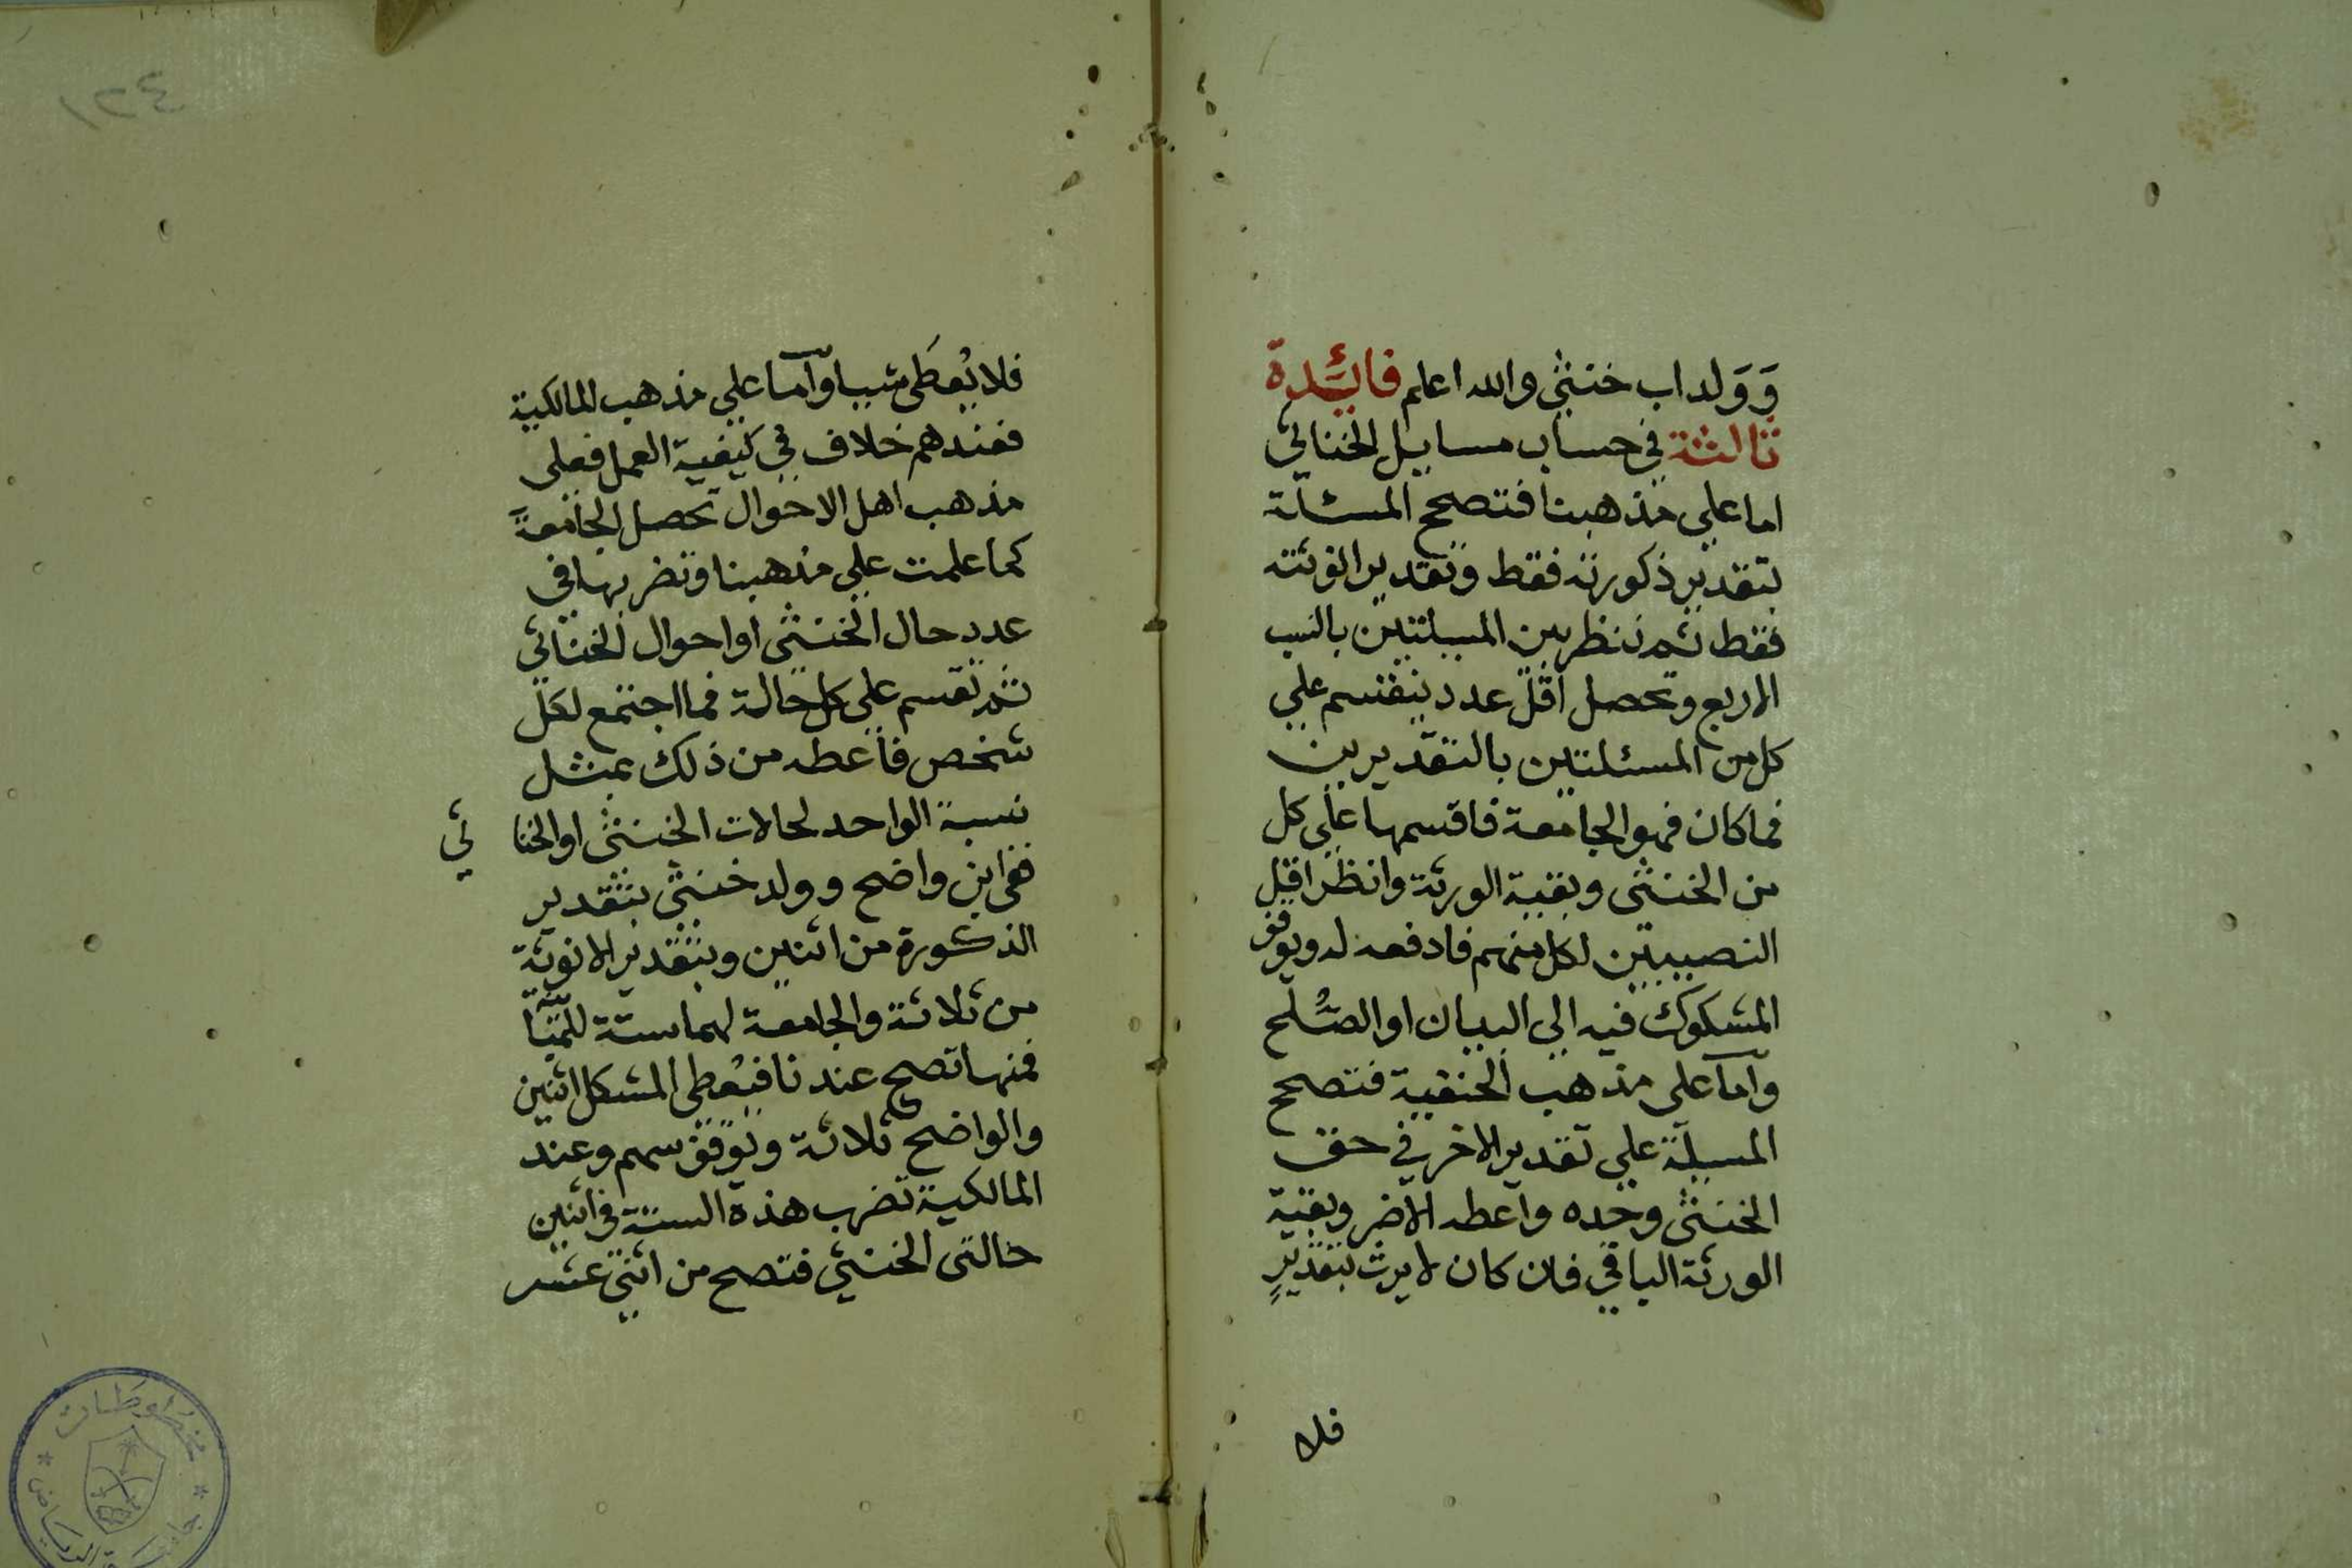 وَوَلداب خنثى والله اعلم فائدة
ثالثة في حساب مسايل الخناثي
اما علي مذهبنا فتصحح المسئلة
بتقدير ذكورته فقط وتقدير انوثته
فقط ثم تنظر بين المسيلتين بالنسب
الاربع وتحصل اقل عدد ينقسم علي
كل من المسئلتين بالتقديرين
فما كان فهو الجامعة فاقسمها علي كل
من الخنثى وبقية الورثة وانظر اقل
النصيبين لكل منهم فادفعه له ويوقف
المشكوك فيه الي البيان او الصُّلح
وأما على مذهب الحنفية فتصحح
المسيلة علي تقدير الاضر في حق
الخنثى وحده واعطه الاضر وبقية
الورثة الباقي فان كان لا يرث بتقديرٍ
فلا
١٢٤
فلا يُعطَى شيا وأما علي مذهب المالكية
فعندهم خلاف في كيفية العمل فعلى
مذهب اهل الاحوال تحصل الجامعة
كما علمت علي مذهبنا وتضربها في
عدد حال الخنثى او احوال الخناثي
ثم تقسم علي كل حالة فما اجتمع لكل
شخص فاعطه من ذلك بمثل
نسبة الواحد لحالات الخنثى او الخنا ثي
ففي ابن واضح وولد خنثى بتقدير
الذكورة من اثنين وبتقدير الانوثة
من ثلاثة والجامعة لهما ستة للمبَيِّنا
فمنها تصح عندنا فيُعطى المشكل اثنين
والواضح ثلاثة ويوقف سهم وعند
المالكية تضرب هذه الستة في اثنين
حالتى الخنثي فتصح من اثني عشر
مخطوطات
جامعة الرياض